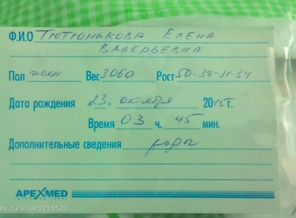 Ф.И.О Тютюнькова Елена
Валерьевна
Пол жен Вес 3060 Рост 50-38-31-34
Дата рождения 23 октября 2015 г.
Время 03 ч. 45 мин.
Дополнительные сведения роды
APEXMED